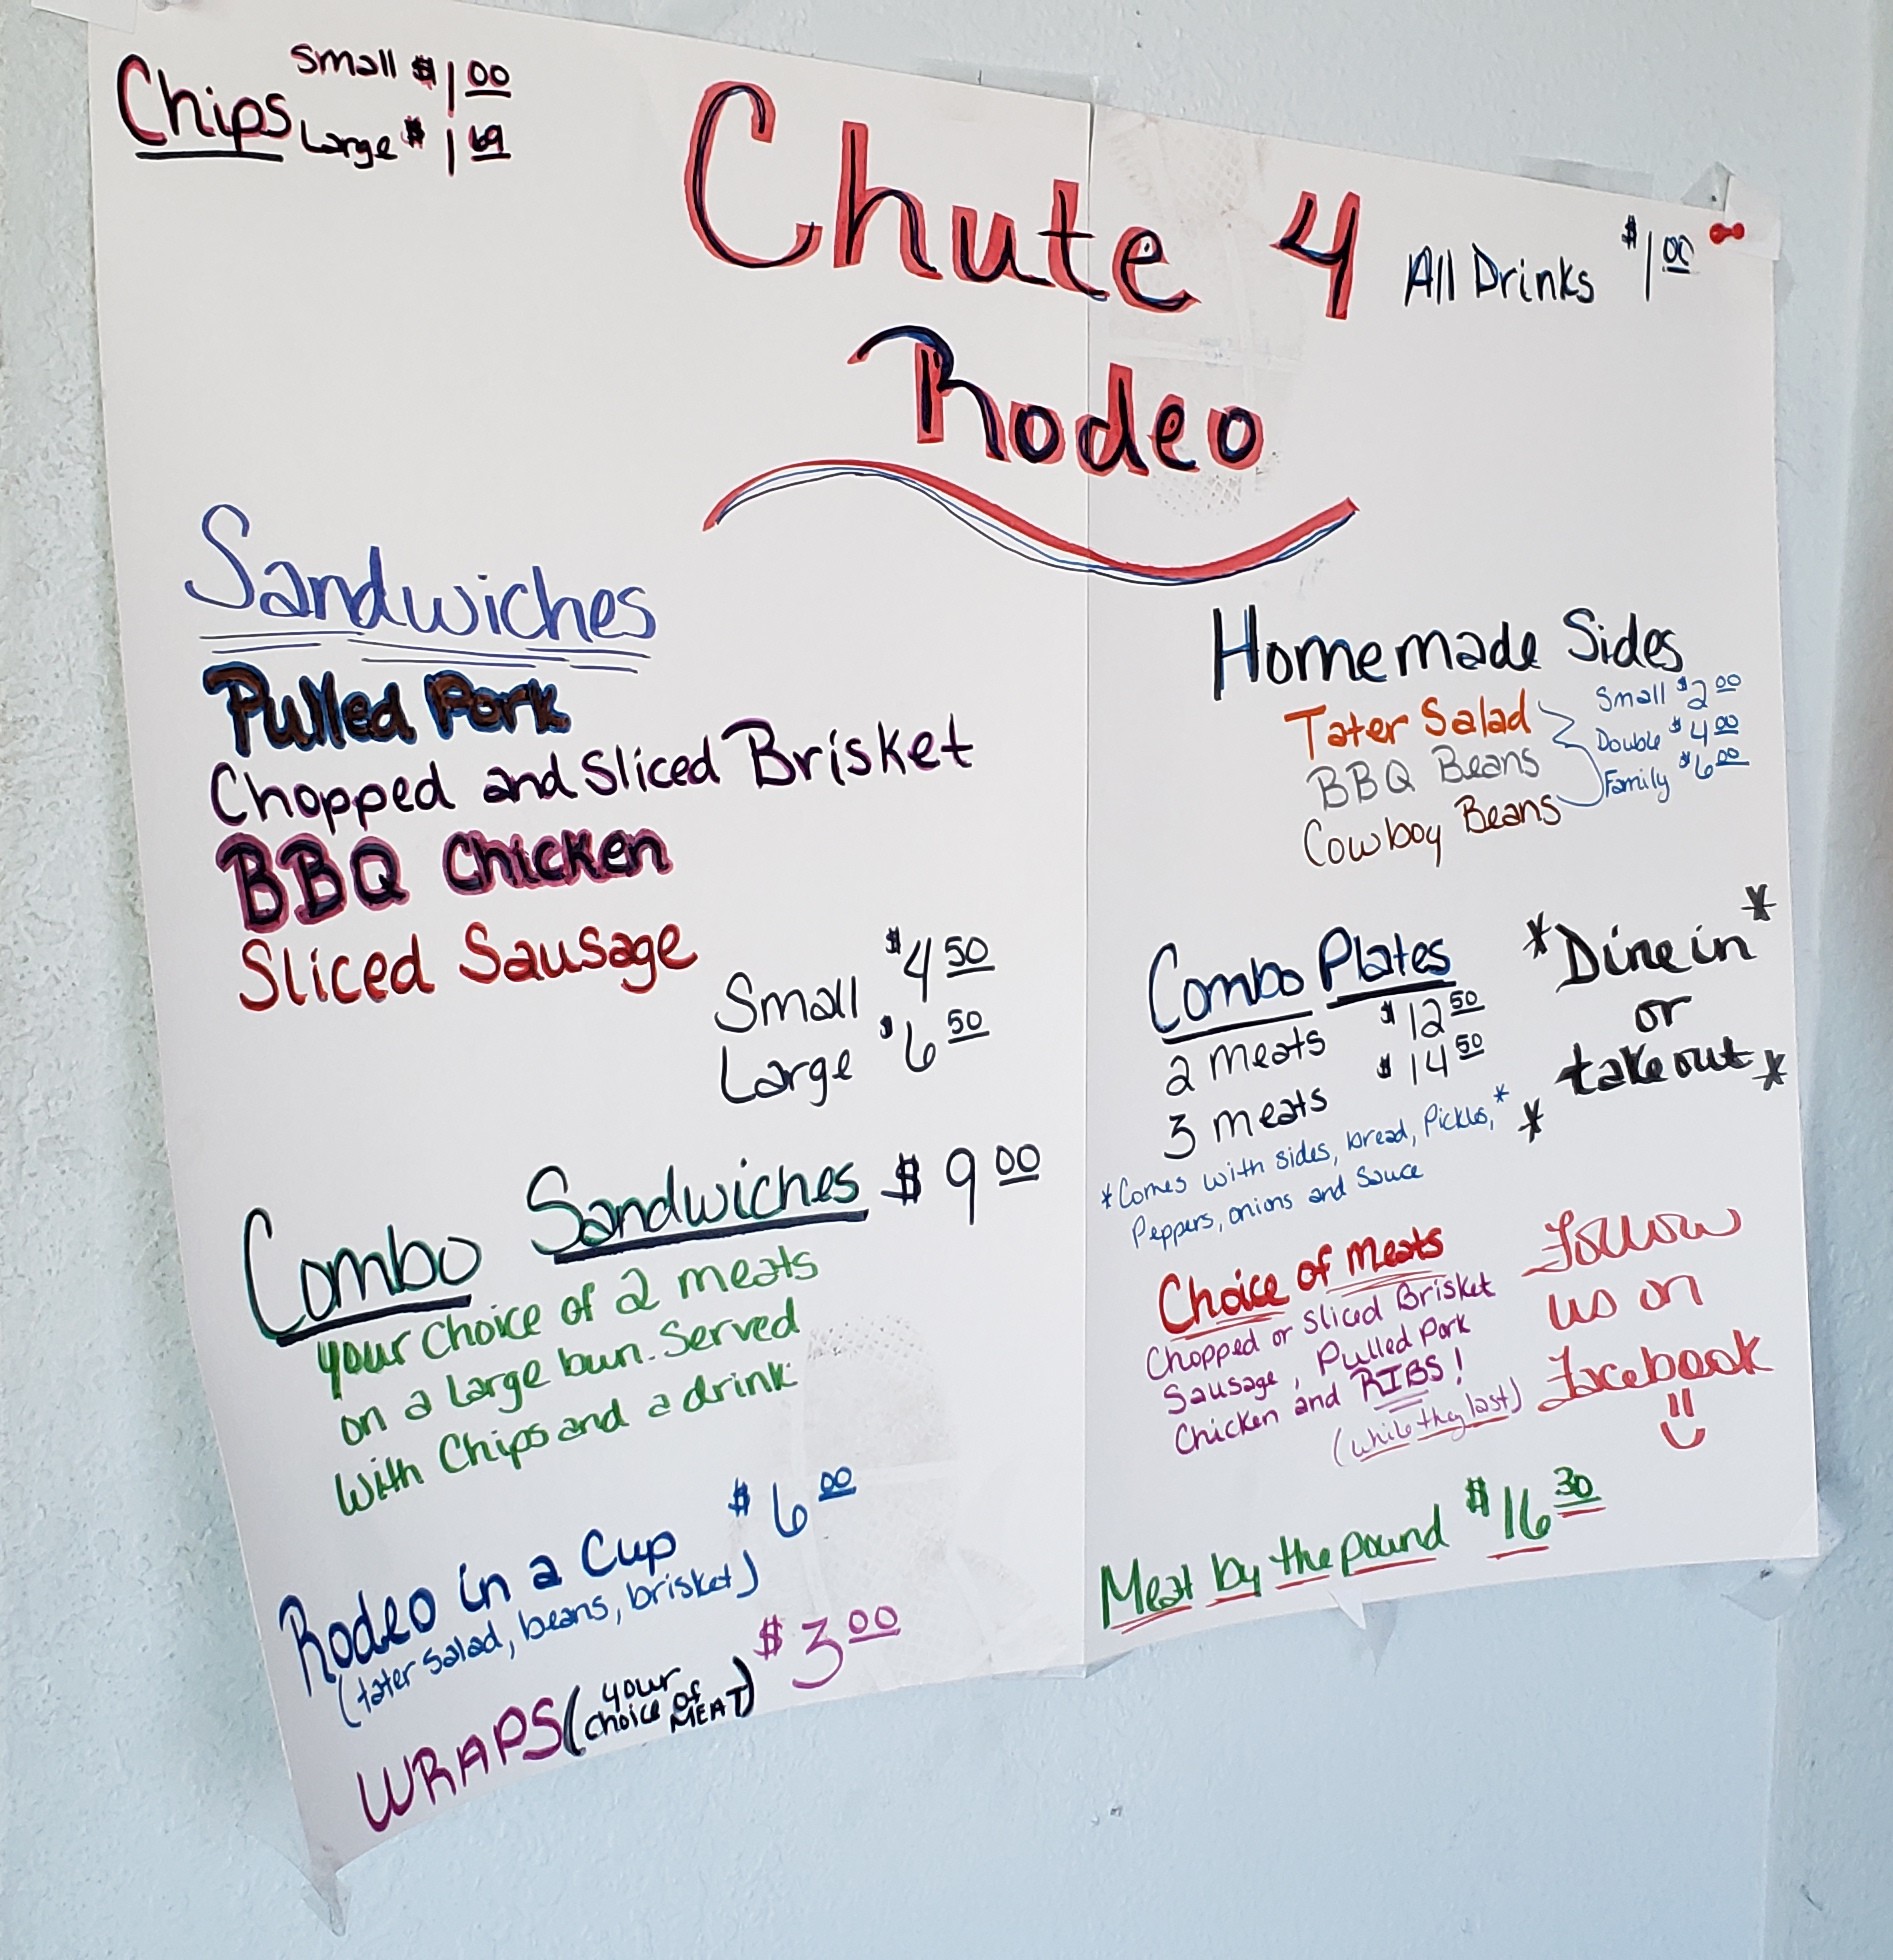 Chips Small $1.00
Large $1.69
Chute 4
Rodeo
All Drinks $1.00
Sandwiches
Pulled Pork
Chopped and Sliced Brisket
BBQ Chicken
Sliced Sausage
Small $4.50
Large $6.50
Combo Sandwiches $9.00
your Choice of 2 meats
on a large bun. Served
With Chips and a drink.
Rodeo in a Cup $6.00
(tater Salad, beans, brisket)
WRAPS (your choice of MEAT) $3.00
Homemade Sides
Tater Salad
BBQ Beans
Cowboy Beans
Small $2.00
Double $4.00
Family $6.00
Combo Plates
2 meats $12.50
3 meats $14.50
*Comes with sides, bread, Pickles,*
Peppers, onions and Sauce
*Dine in*
or
*take out*
Choice of Meats
Chopped or Sliced Brisket
Sausage, Pulled Pork
Chicken and RIBS!
(while they last)
Follow
us on
Facebook
Meat by the pound $16.30